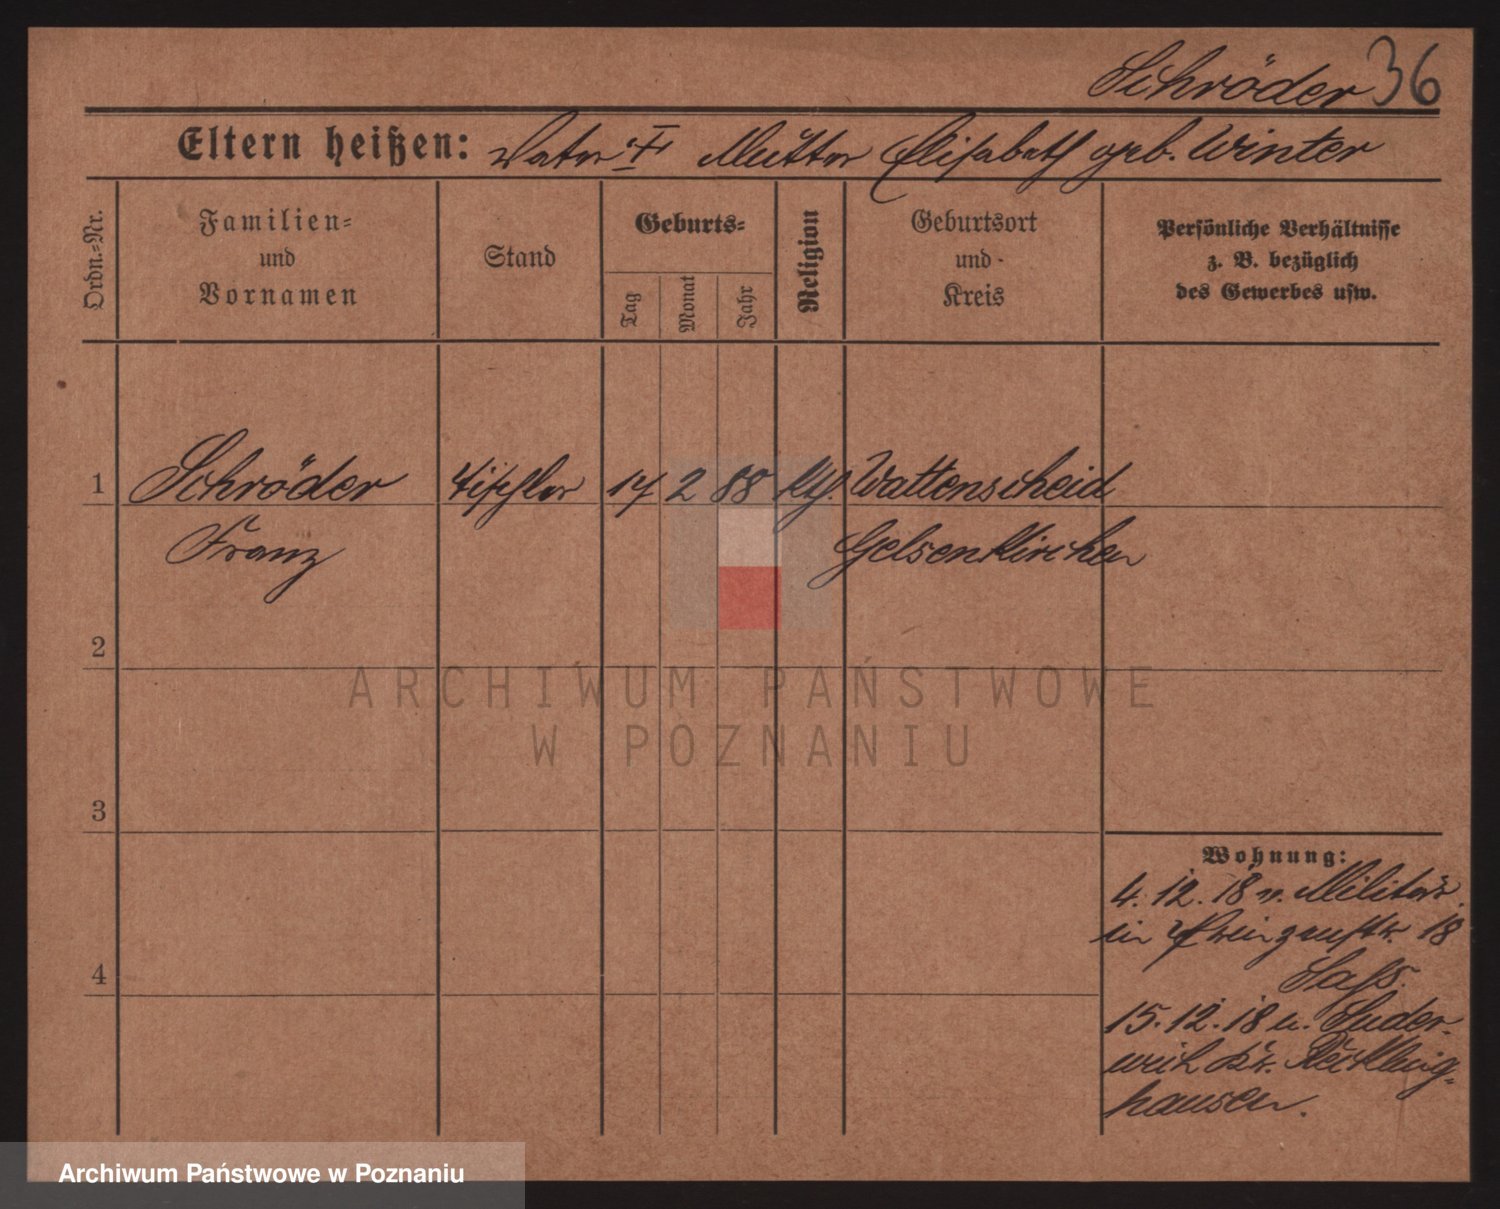 Schröder 36
Eltern heißen: Vater † Mutter Elisabeth geb. Winter
Ordn.-Nr.
Familien-
und
Vornamen
Stand
Geburts-
Tag
Monat
Jahr
Religion
Geburtsort
und
Kreis
Persönliche Verhältnisse
z. B. bezüglich
des Gewerbes usw.
1 Schröder Tischler 17 2 88 kth. Wattenscheid
Franz Gelsenkirchen
2
3
4
Wohnung:
4. 12. 18 v. Militär
in 18
15. 12. 18 n. Suder-
wich Kr. Reckling-
hausen.
ARCHIWUM PAŃSTWOWE
W POZNANIU
Archiwum Państwowe w Poznaniu